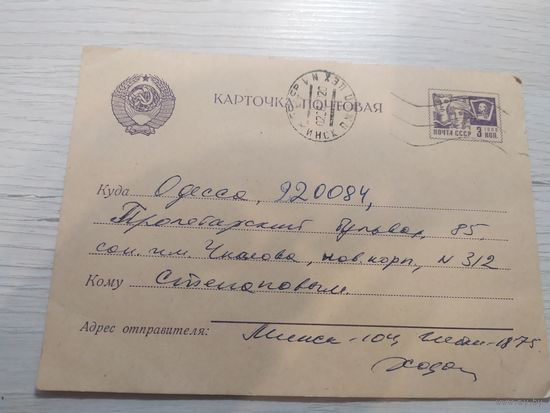 КАРТОЧКА ПОЧТОВАЯ
ПОЧТА СССР 3 КОП.
Куда Одесса, 920084,
Пролетарский бульвар, 85,
сан. им. Чкалова, нов. корп., N 312
Кому Степановым.
Адрес отправителя: Минск-104 -1875.